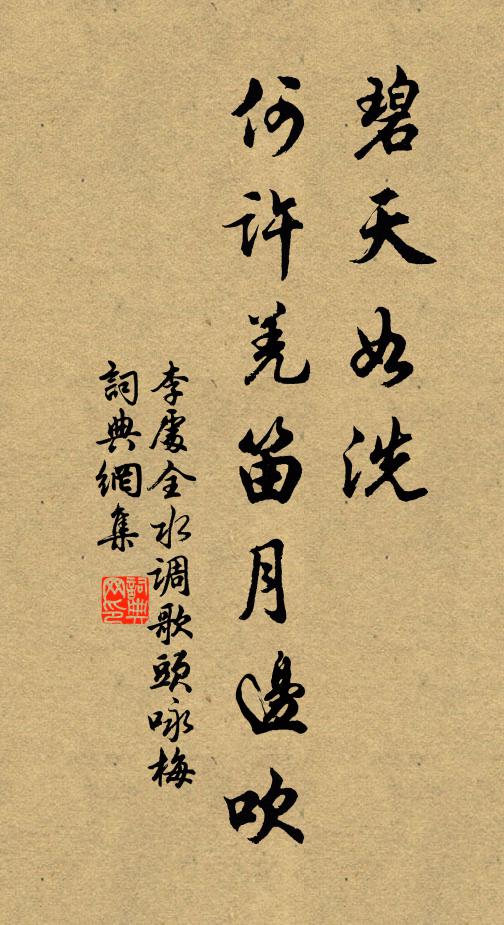 碧天如洗
何許羌笛月邊吹
李處全水调歌頭咏梅
詞典網集
詞典网印